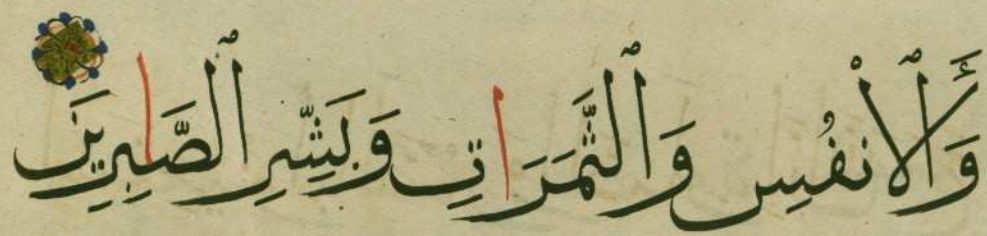 وَٱلْأَنفُسِ وَٱلثَّمَرَاتِ وَبَشِّرِ ٱلصَّابِرِينَ